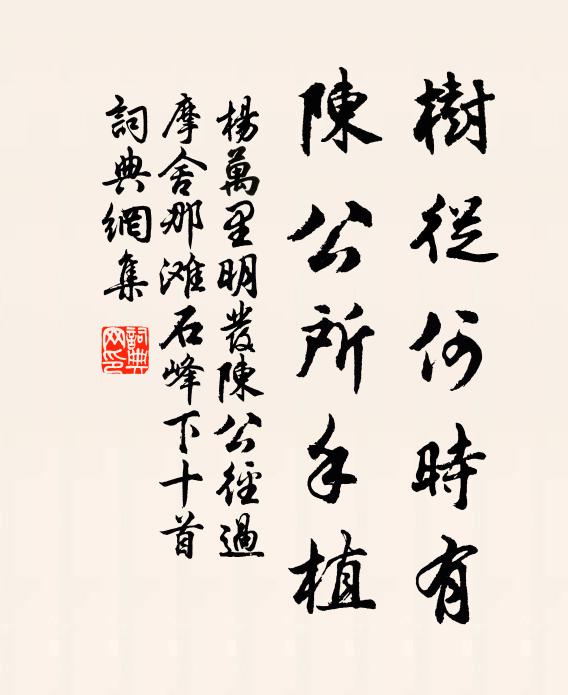 樹從何時有
陳公所手植
楊萬里明發陳公徑過
摩舍那滩石峰下十首
詞典網集
詞典网印